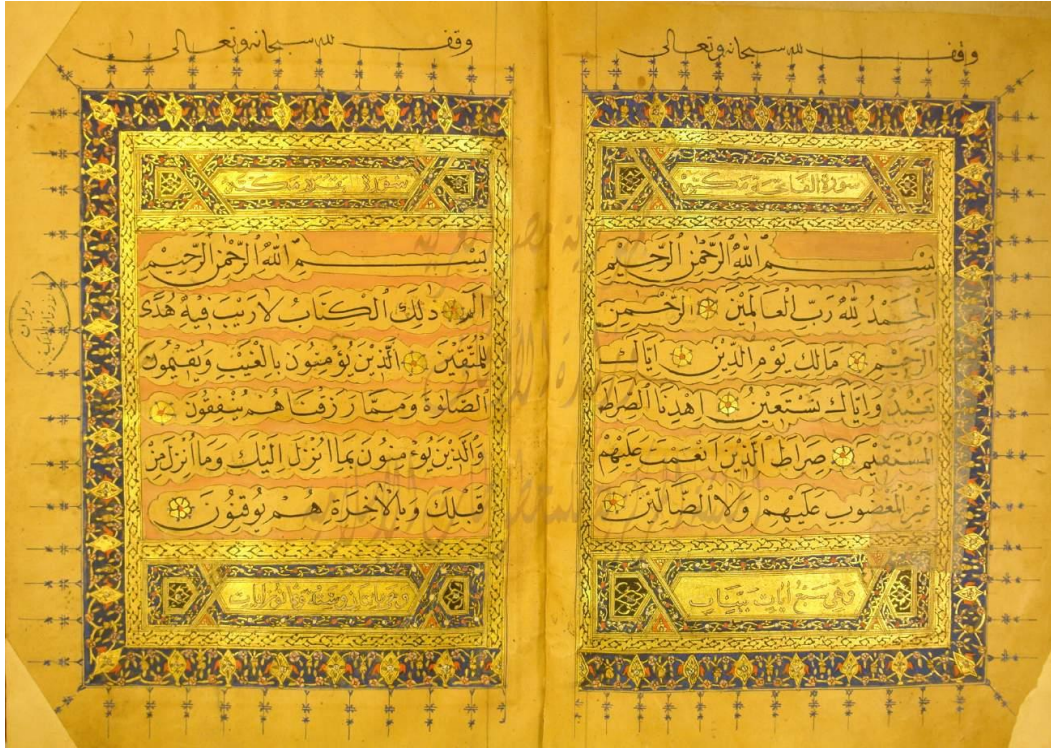 وقف لله سبحانه وتعالى
سورة الفاتحة مكية
بسم الله الرحمن الرحيم
الحمد لله رب العالمين الرحمن
الرحيم مالك يوم الدين اياك
نعبد واياك نستعين اهدنا الصراط
المستقيم صراط الذين انعمت عليهم
غير المغضوب عليهم ولا الضالين
وهي سبع ايات بينات
وقف لله سبحانه وتعالى
١
بسم الله الرحمن الرحيم
الم ذلك الكتاب لا ريب فيه هدى
للمتقين الذين يؤمنون بالغيب ويقيمون
الصلوة ومما رزقناهم ينفقون
والذين يؤمنون بما انزل اليك وما انزل من
قبلك وبالاخرة هم يوقنون